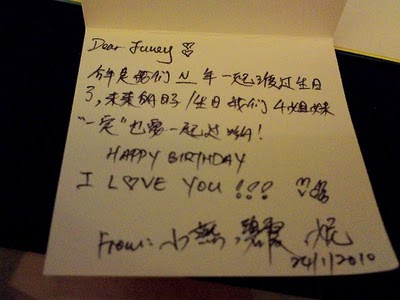 Dear Juney
今年是我们 N 年一起度过生日
了，未来的日子/生日我们4姐妹
"一定"也要一起过哟！
HAPPY BIRTHDAY
I LOVE YOU !!!
From: 小燕, 碧霞, 妮
24/1/2010